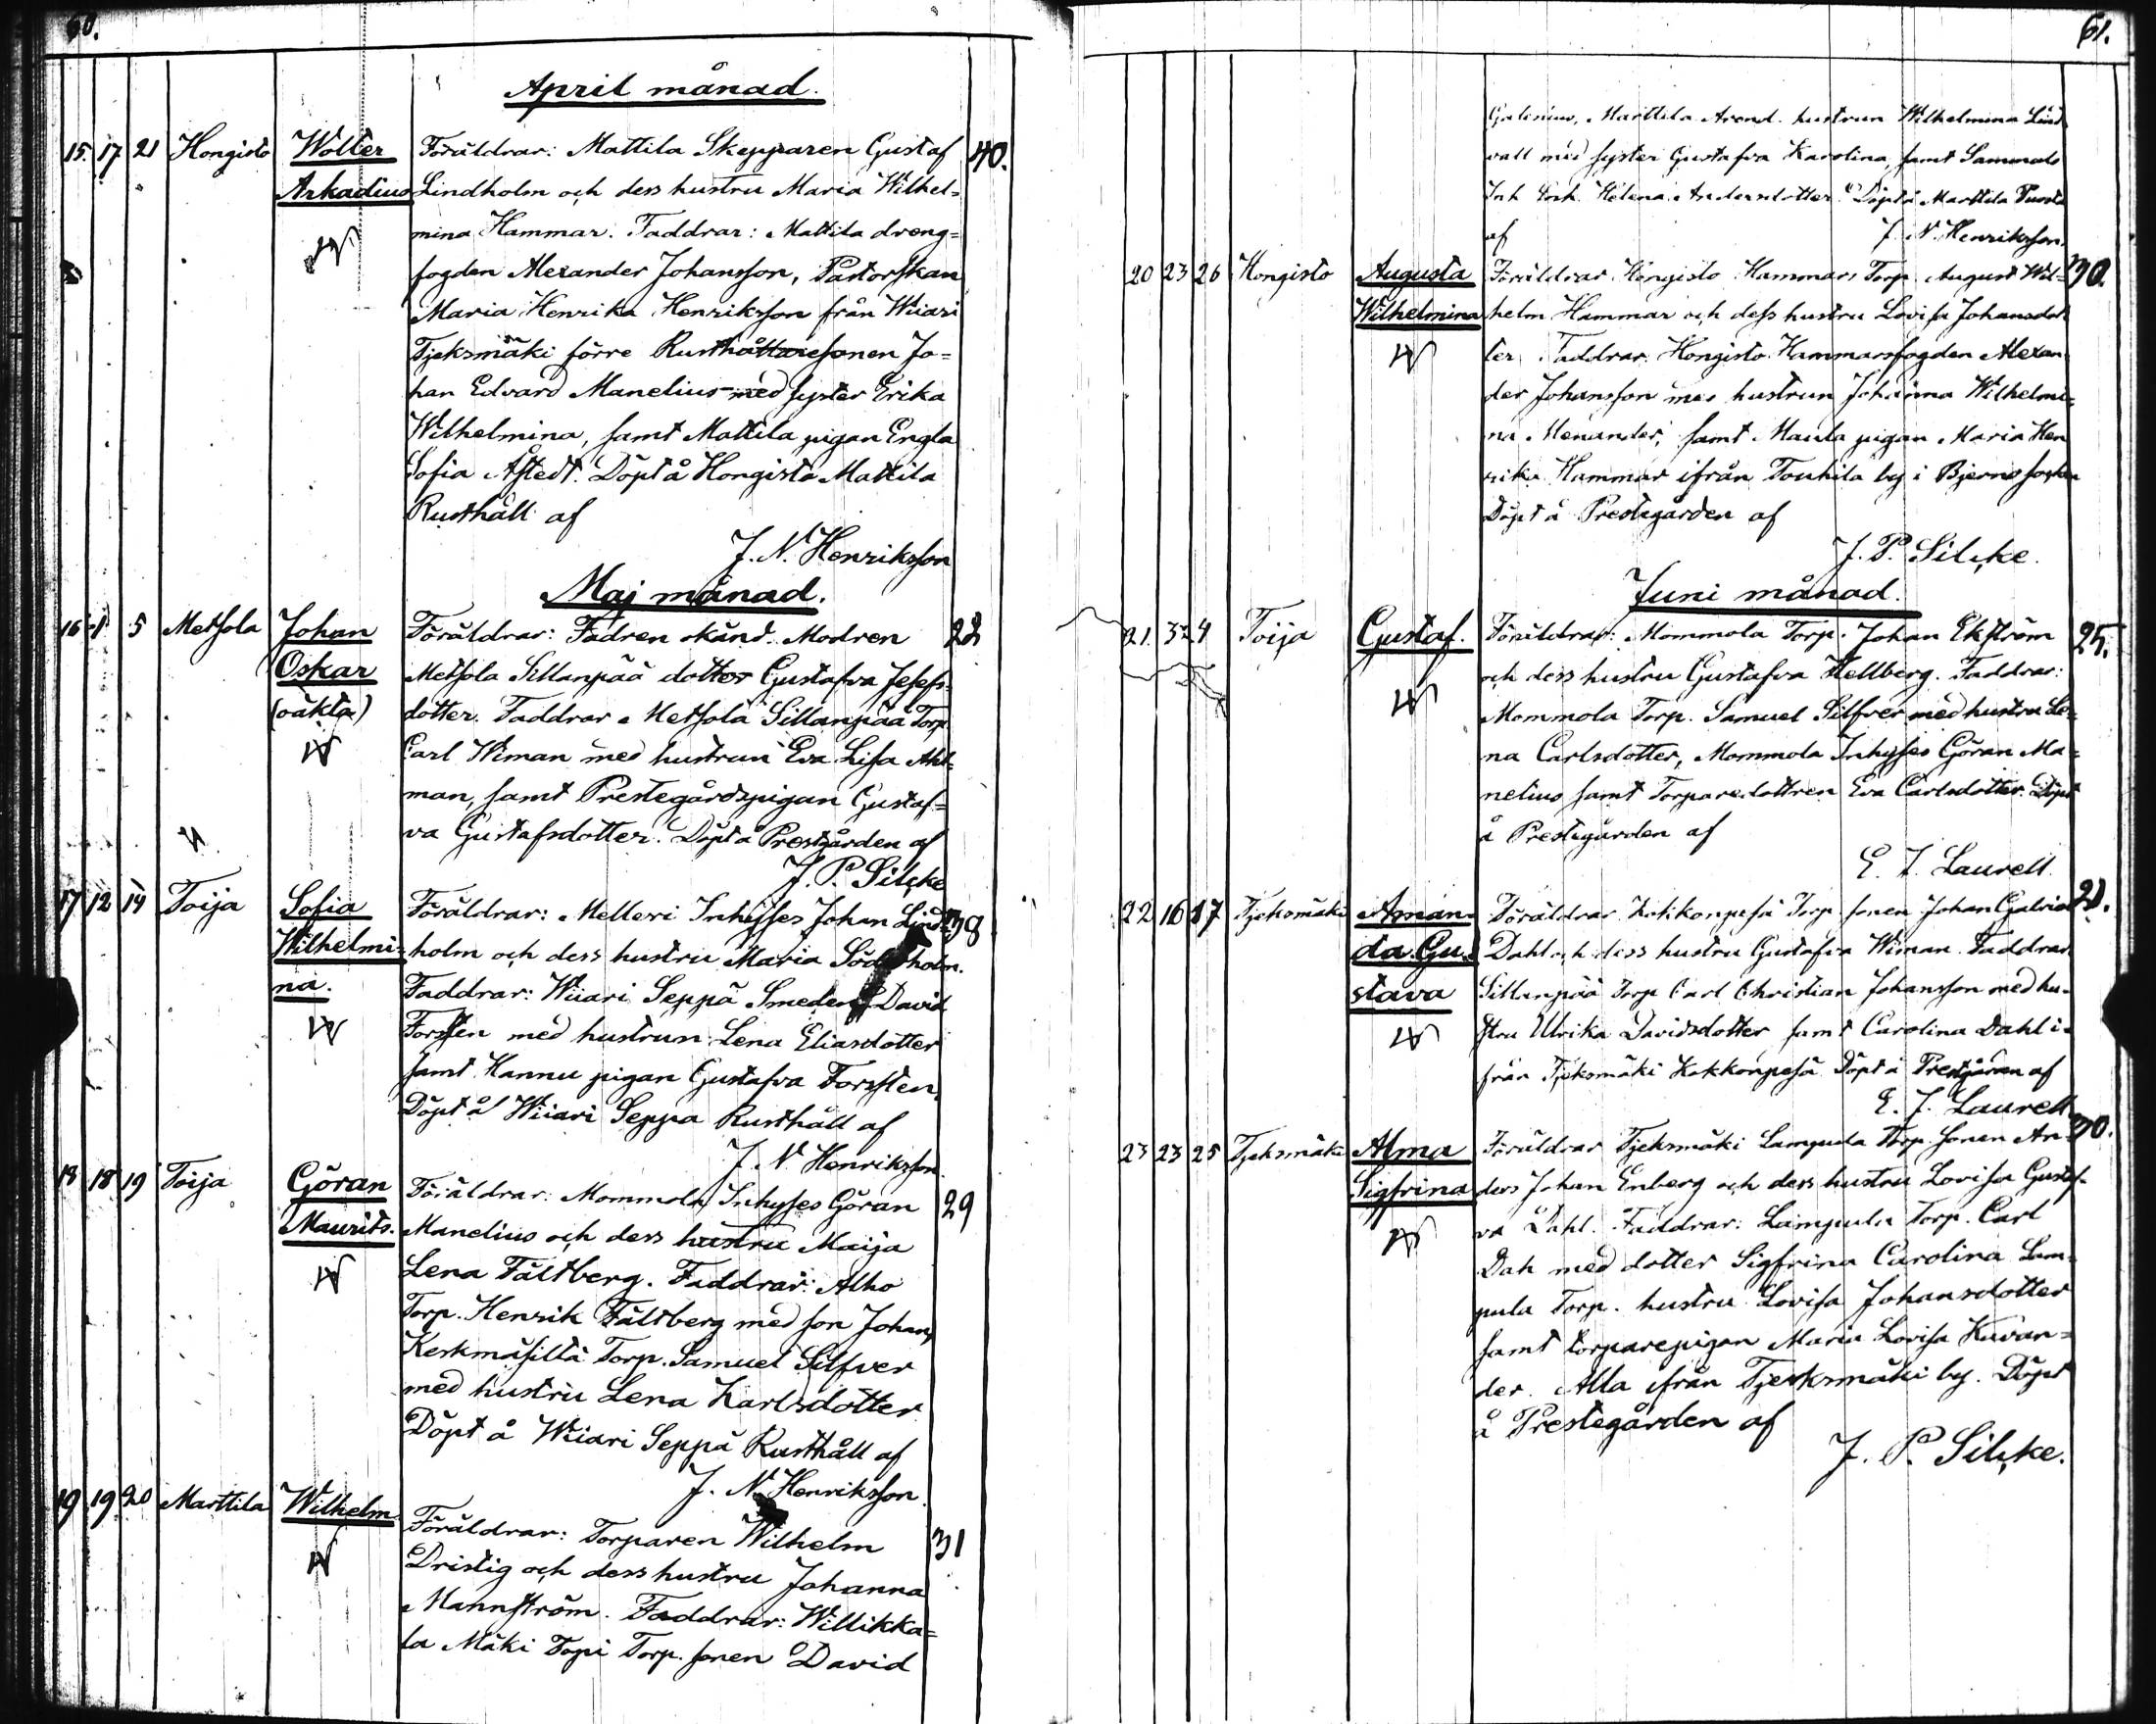 60.
April månad.
15. 17 21 Hongisto Wolter Föräldrar: Mattila Skepparen Gustaf 40.
Arkadius Lindholm och dess hustru Maria Wilhel=
mina Hammar. Faddrar: Mattila dreng=
fogden Alexander Johansson, Pastorskan
Maria Henrika Henriksson från Wiiari
Tjeksmäki förre Rusthållaresonen Jo=
han Edvard Manelius med syster Erika
Wilhelmina, samt Mattila pigan Engla
Sofia Åstedt. Döpt å Hongisto Mattila
Rusthåll af
J. N. Henriksson
Maj månad.
16 1 5 Metsola Johan Föräldrar: Fadren okänd. Modren 22
Oskar Metsola Sillanpää dotter Gustafva Josefs=
(oäkta) dotter. Faddrar Metsola Sillanpää Torp.
Carl Wiman med hustrun Eva Lisa Ahl=
man, samt Prestegårdspigan Gustaf=
va Gustafsdotter. Döpt å Prestgården af
J. P. Silcke
17 12 14 Toija Sofia Föräldrar: Melleri Inhyses Johan Lind= 38
Wilhelmi= holm och dess hustru Maria Söderholm.
na. Faddrar: Wiiari Seppä Smeden David
Forsten med hustrun Lena Eliasdotter
samt Hannu pigan Gustafva Forssten,
Döpt å Wiiari Seppä Rusthåll af
J. N. Henriksson
18 18 19 Toija Göran Föräldrar: Mommola Inhyses Göran 29
Maurits. Manelius och dess hustru Maija
Lena Fältberg. Faddrar: Alho
Torp. Henrik Fältberg med son Johan,
Keskmäsiltä Torp. Samuel Silfver
med hustru Lena Karlsdotter
Döpt å Wiiari Seppä Rusthåll af
J. N. Henriksson.
19 19 20 Marttila Wilhelm Föräldrar: Torparen Wilhelm 31
Dristig och dess hustru Johanna
Mannström. Faddrar: Willikka=
la Mäki Topi Torp. sonen David
61.
Galenius, Marttila Arend. hustrun Wilhelmina Lind
vall med syster Gustafva Karolina, samt Sammalo
Helena Andersdotter. Döpt å Marttila
af J. N. Henriksson.
20 23 26 Hongisto Augusta Föräldrar Hongisto Hammars Torp. August Wil= 30.
Wilhelmina helm Hammar och dess hustru Lovisa Johansdot
ter. Faddrar Hongisto Hammarsfogden Alexan
der Johansson med hustrun Johanna Wilhelmi=
na Menander, samt Maula pigan Maria Hen
rika Hammar ifrån Touhila by i Bjerno socken
Döpt å Prestegården af
J. P. Silcke.
Juni månad.
21. 3 4 Toija Gustaf. Föräldrar: Mommola Torp. Johan Ekström 25.
och dess hustru Gustafva Hellberg. Faddrar:
Mommola Torp. Samuel Silfver med hustru Le=
na Carlsdotter, Mommola Inhyses Göran Ma=
nelius samt Torparedottren Eva Carlsdotter. Döpt
å Prestegården af
E. J. Laurell.
22 16 17 Tjeksmäki Aman= Föräldrar Kokkonpesä Torp. sonen Johan Gabriel
da Gu= Dahl och dess hustru Gustafva Wiman. Faddrar
stava Sillanpää Torp Carl Christian Johansson med hu=
stru Ulrika Davidsdotter samt Carolina Dahl i=
från Tjeksmäki Kokkonpesä Döpt å Prestgården af
E. J. Laurell
23 23 25 Tjeksmäki Alma Föräldrar Tjeksmäki Lampula Torp. sonen An= 30.
Sigfrina ders Johan Enberg och dess hustru Lovisa Gustaf=
va Dahl. Faddrar: Lampula Torp. Carl
Dah med dotter Sigfrina Carolina Lam=
pula Torp. hustru Lovisa Johansdotter
samt torparepigan Maria Lovisa Kavan=
der. Alla ifrån Tjeksmäki by. Döpt
å Prestegården af
J. P. Silcke.